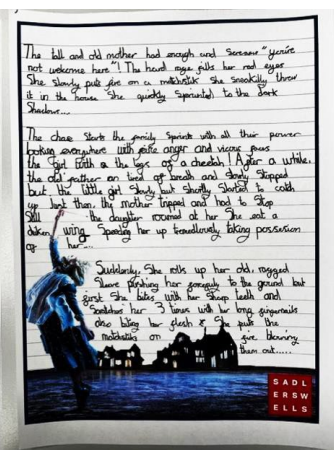 The tall and old mother had enough and scresow "you're
not welcome here"! The heard rage fills her red eyes
She slowly puts fire on a matchstick she sneakily threw
it in the house She quickly sprinted to the dark
Shadows....
The chase starts the family sprints with all their power
looking everywhere with anger and vicious faces
the girl with a the legs of a cheetah! After a while,
the old father on tired of breath and slowly stopped
but the little girl slowly but shortly started to catch
up Just then, the mother tripped and had to stop
Still the daughter roamed at her She eat a
chicken wing Speeding her up tremedously taking possesion
of her...
Suddenly, She rolls up her old, ragged
Sleeve pushing her to the ground but
first She bites with her sharp teeth and
Scratches her 3 times with her long fingernails
also biting her flesh & She puts the
matchstiks on fire blowing
them out.....
SADL
ERSW
ELLS